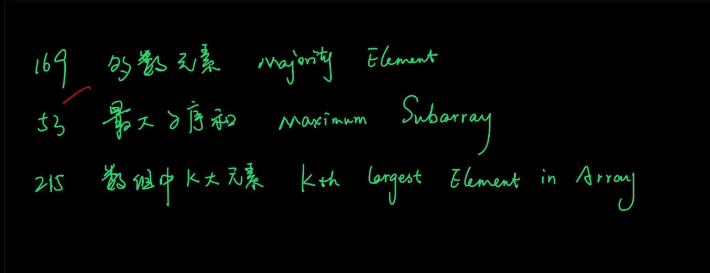 169 多数元素 Majority Element
53 最大子序和 Maximum Subarray
215 数组中K大元素 Kth largest Element in Array